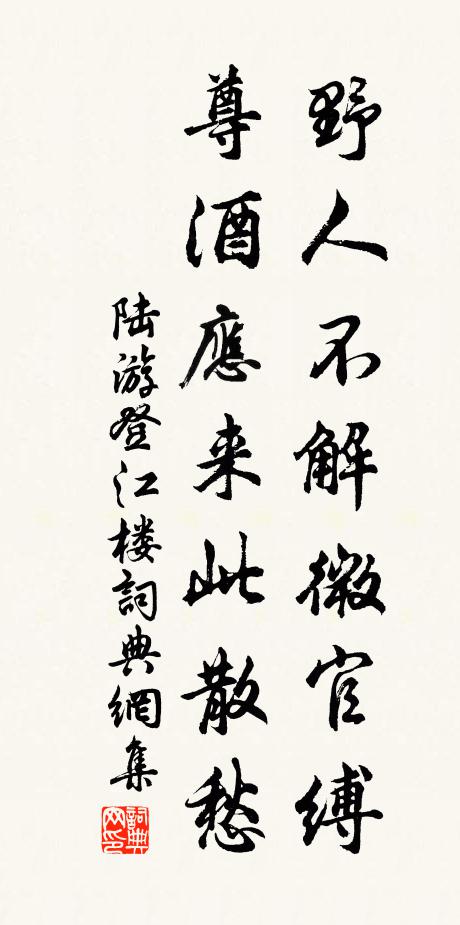 野人不解微官縛
尊酒應来此散愁
陆游登江楼詞典網集
詞典
网印